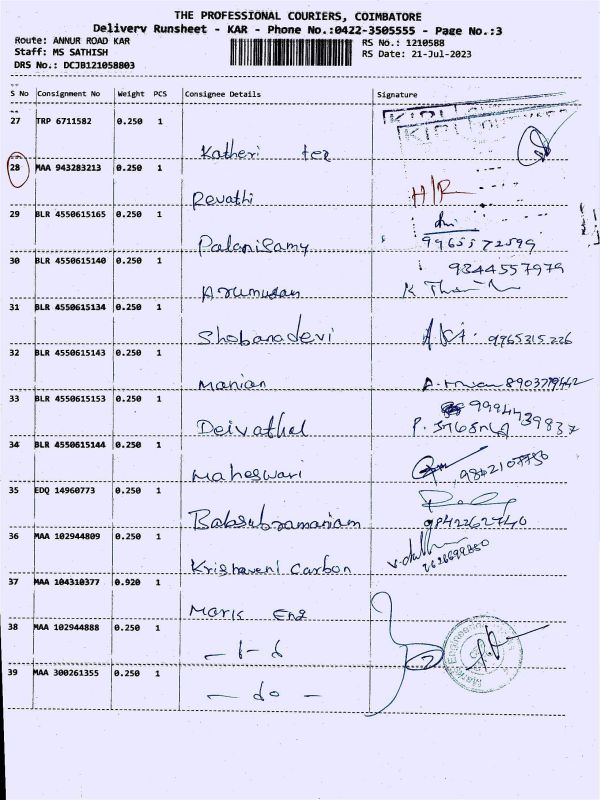 THE PROFESSIONAL COURIERS, COIMBATORE
Delivery Runsheet - KAR - Phone No.:0422-3505555 - Page No.:3
Route: ANNUR ROAD KAR
RS No.: 1210588
Staff: MS SATHISH
RS Date: 21-Jul-2023
DRS No.: DCJB121058803
S No Consignment No Weight PCS Consignee Details Signature
27 TRP 6711582 0.250 1
Katheri tez
28 MAA 943283213 0.250 1
Revathi H/R
29 BLR 4550615165 0.250 1
Palanisamy 9965572599
30 BLR 4550615140 0.250 1 9344557979
Arumugan
31 BLR 4550615134 0.250 1
Shobanadevi 9965315226
32 BLR 4550615143 0.250 1
Manian
33 BLR 4550615153 0.250 1
Deivathal
34 BLR 4550615144 0.250 1
Maheswari
35 EDQ 14960773 0.250 1
Balasubramaniam 9842262740
36 MAA 102944809 0.250 1
Krishaveni Carbon
37 MAA 104310377 0.920 1
Maris Eng
38 MAA 102944888 0.250 1
39 MAA 300261355 0.250 1
— do —